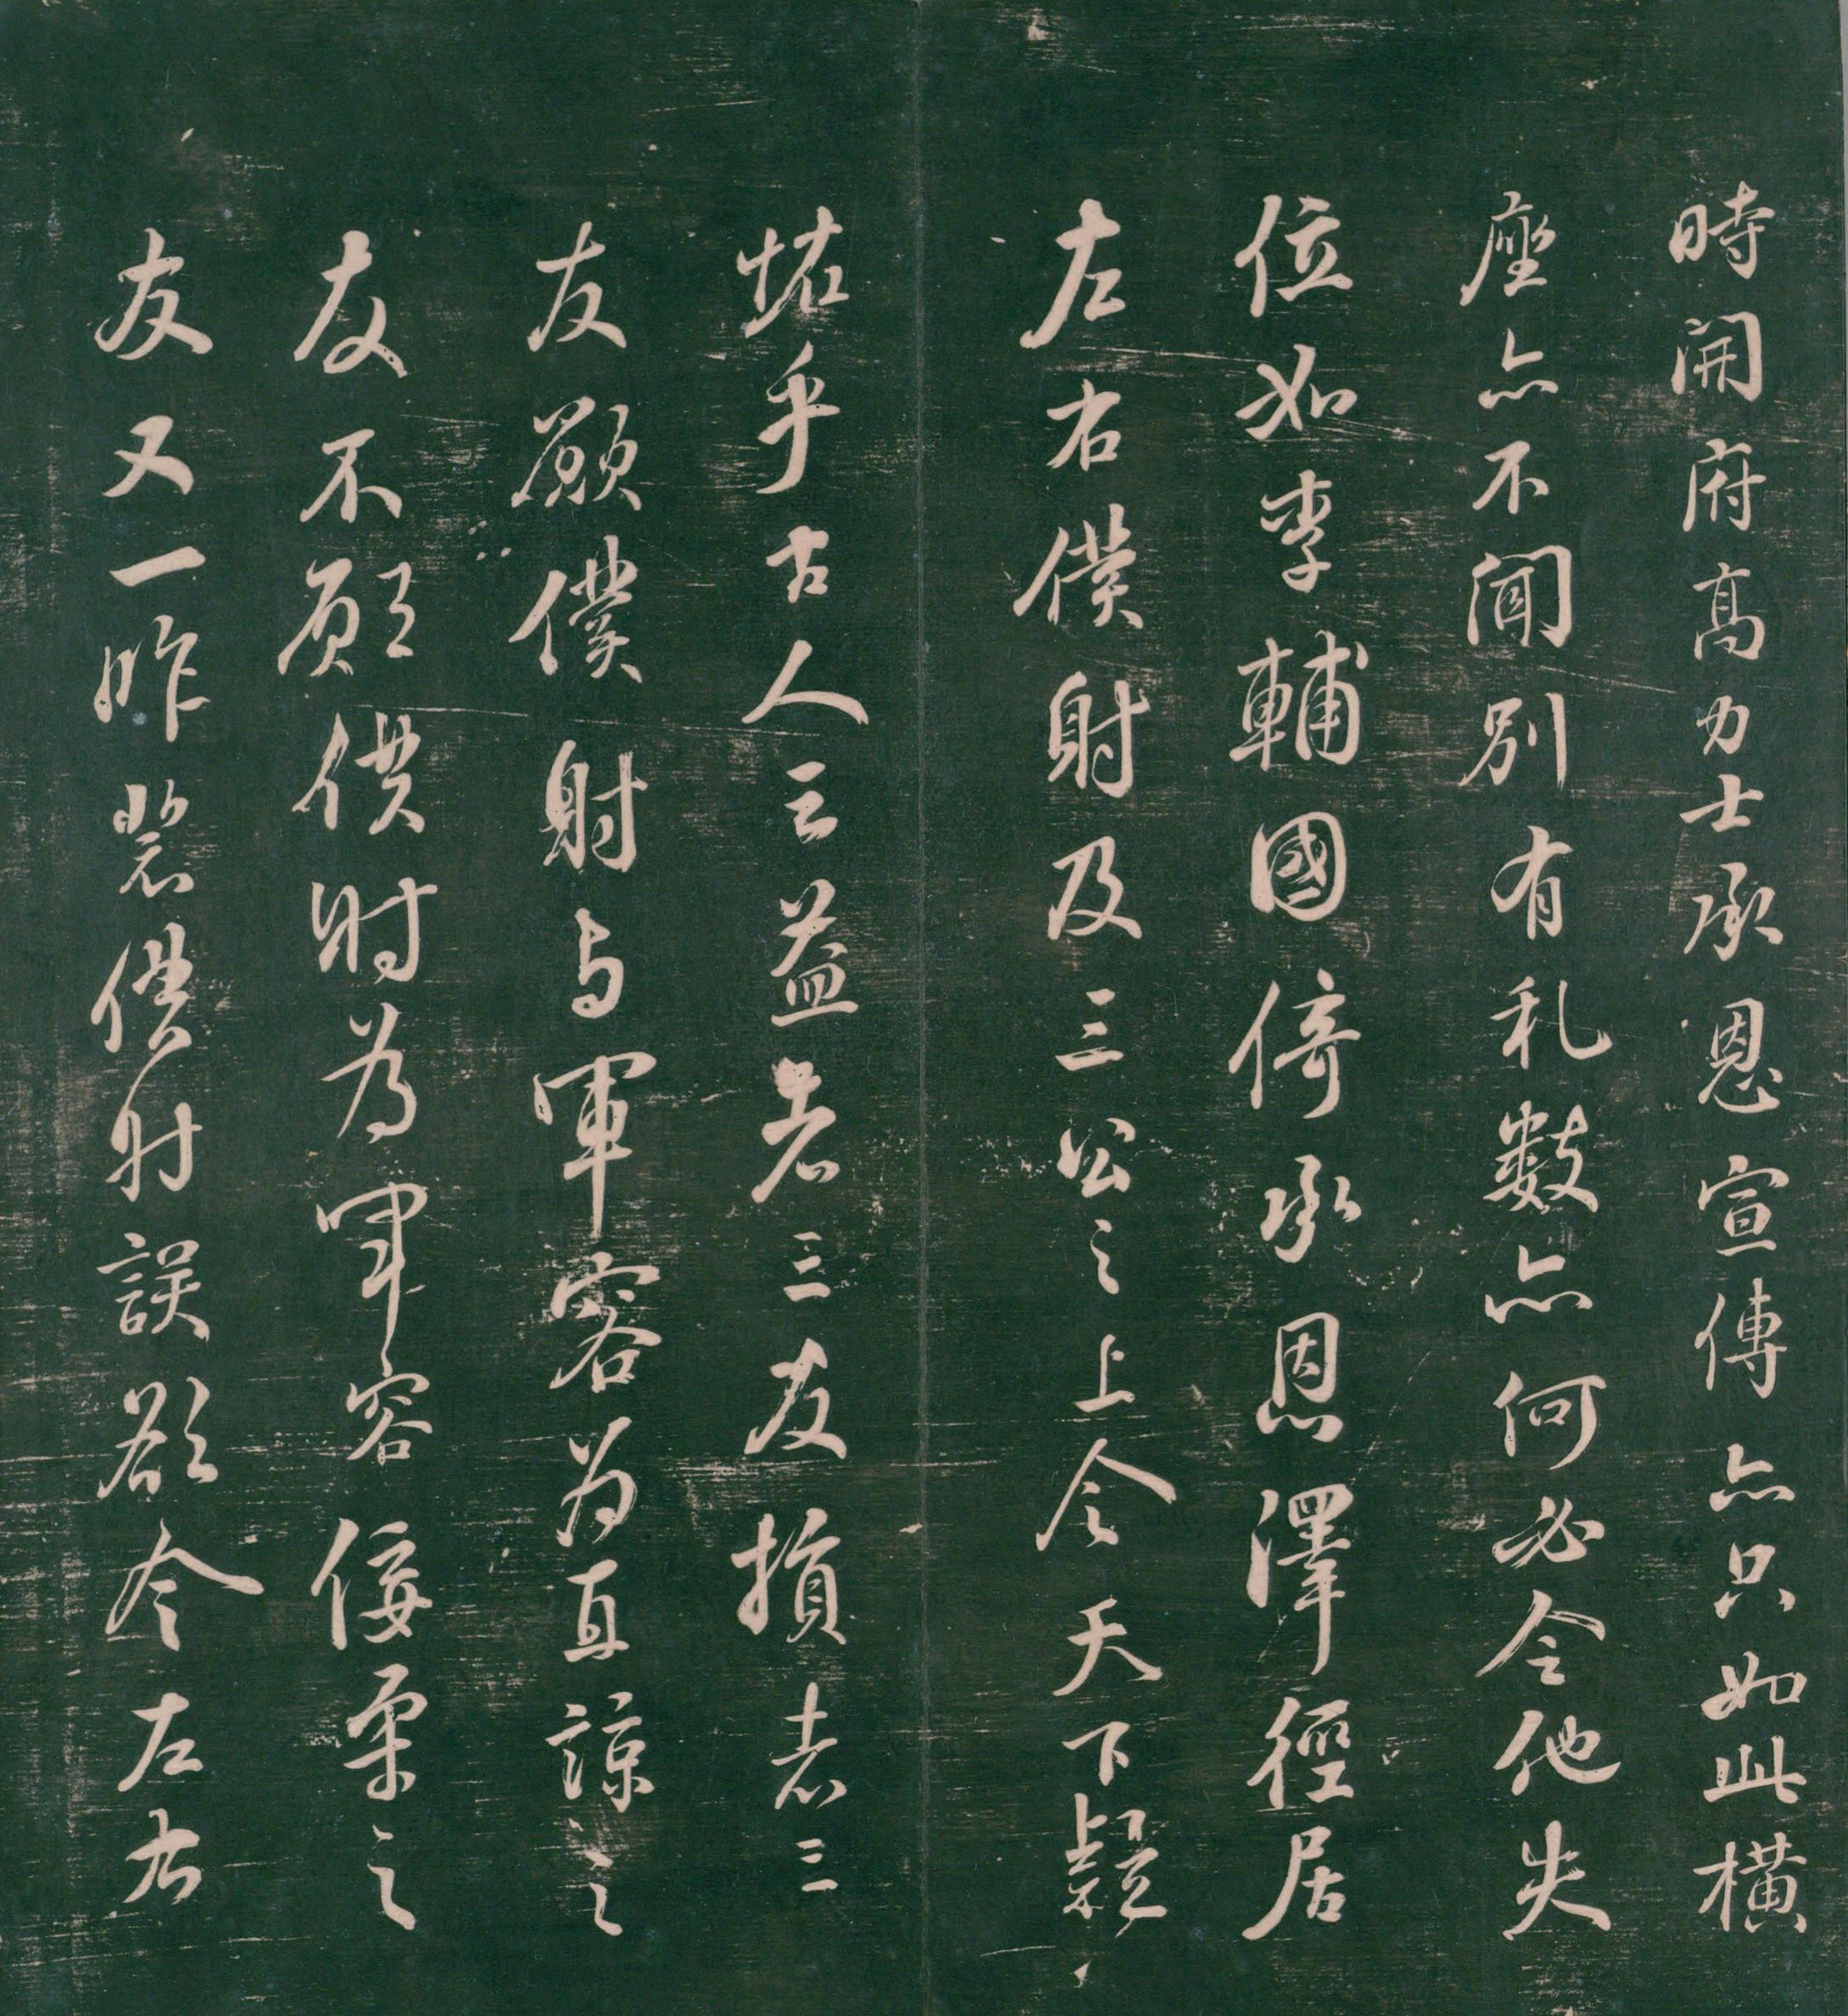 時開府高力士承恩宣傳亦只如此橫
座亦不聞別有礼數亦何必令他失
位如李輔國倚承恩澤徑居
左右僕射及三公之上令天下疑
恠乎古人云益者三友損者三
友願僕射与軍容為直諒之
友不願僕射為軍容佞柔之
友又一昨裴僕射誤欲令左右